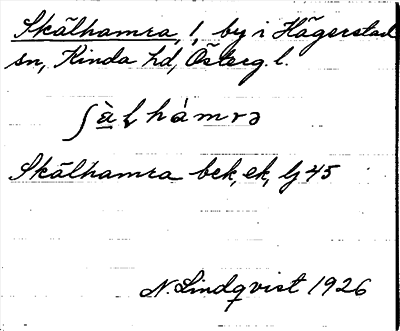 Skälhamra, 1, by i Hägerstad
sn, Kinda hd, Österg. l.
ʃàlhámrə
Skälhamra bek, ek, Lj 45
N. Lindqvist 1926